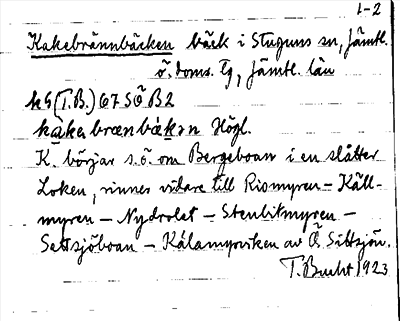 1-2
Kakebrännbäcken bäck i Stuguns sn, Jämtl.
ö. doms. tg, Jämtl. län
k5 (T.B.) 67 SÖ B2
kakebrænbɛkən Högl.
K. börjar s.ö. om Bergeboan i en slåtter
Loken, rinnes vidare till Rismyren - Käll-
myren - Nydrolet - Stenbitmyren -
Settsjöboan - Kålamyrviken av Ö. Sittsjön.
T. Bucht 1923